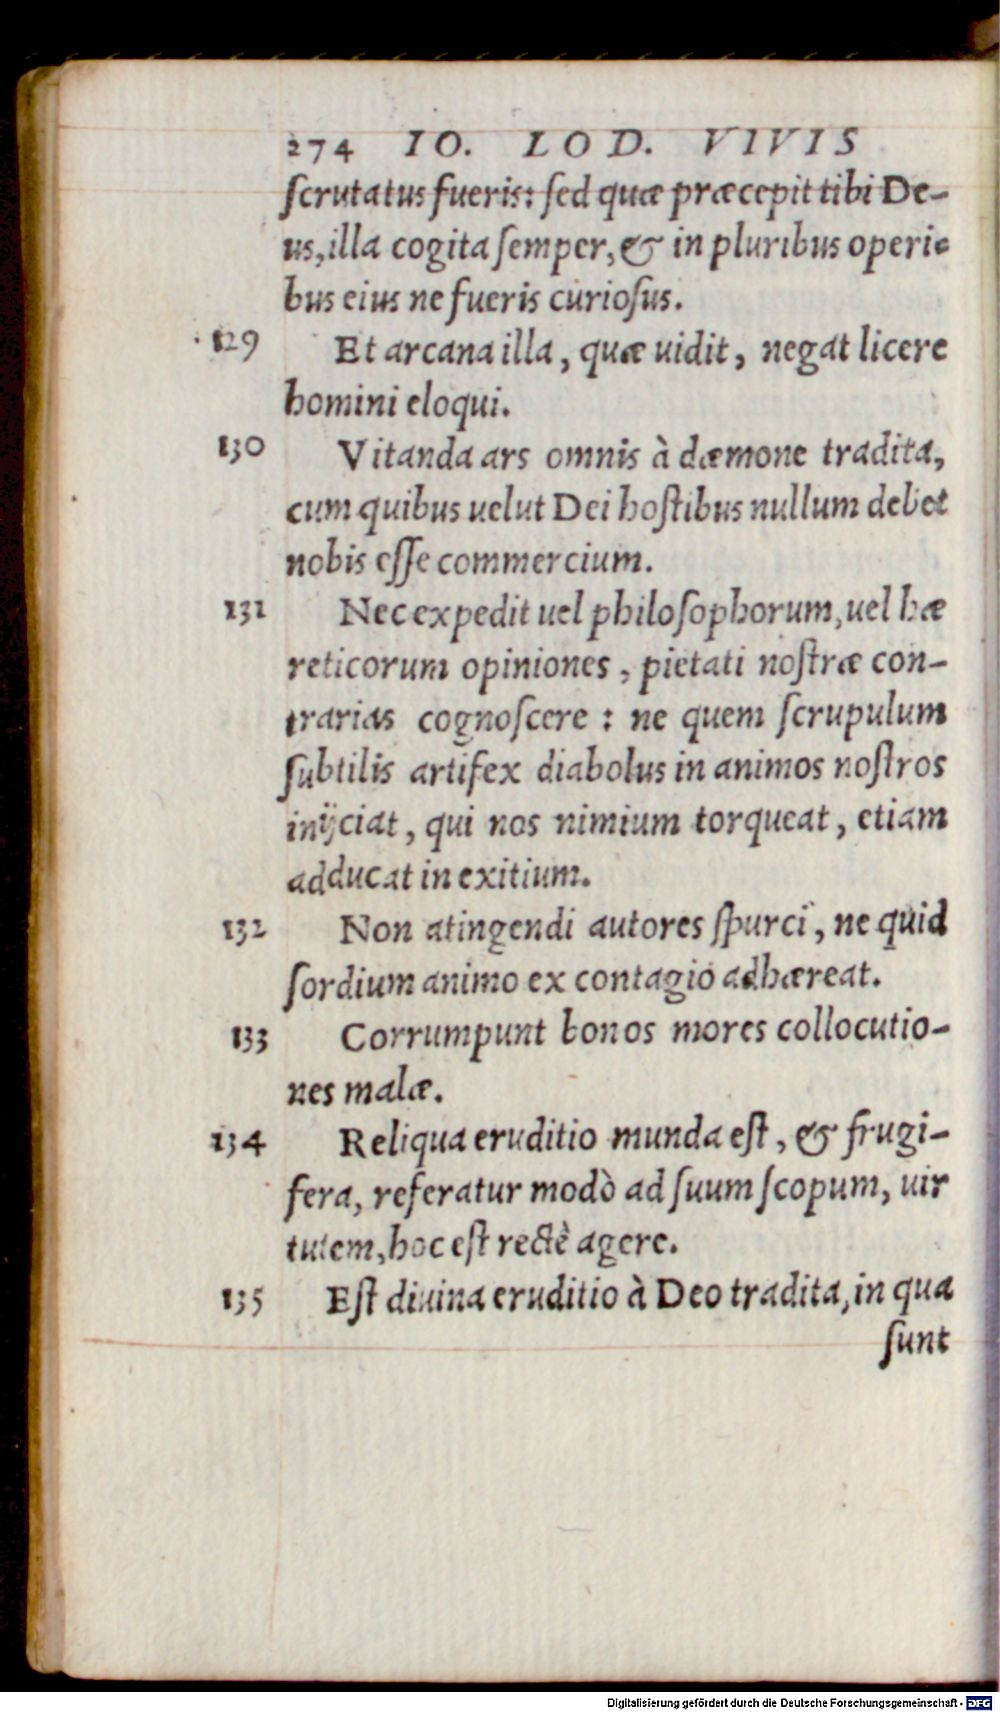 274 IO. LOD. VIVIS
ſcrutatus fueris: ſed quæ præcepit tibi De-
us, illa cogita ſemper, & in pluribus operi-
bus eius ne fueris curioſus.
129 Et arcana illa, quæ uidit, negat licere
homini eloqui.
130 Vitanda ars omnis à dæmone tradita,
cum quibus uelut Dei hoſtibus nullum debet
nobis eſſe commercium.
131 Nec expedit uel philoſophorum, uel hæ
reticorum opiniones, pietati noſtræ con-
trarias cognoſcere: ne quem ſcrupulum
ſubtilis artifex diabolus in animos noſtros
inijciat, qui nos nimium torqueat, etiam
adducat in exitium.
132 Non atingendi autores ſpurci, ne quid
ſordium animo ex contagio adhæreat.
133 Corrumpunt bonos mores collocutio-
nes malæ.
134 Reliqua eruditio munda eſt, & frugi-
fera, referatur modò ad ſuum ſcopum, uir
tutem, hoc eſt rectè agere.
135 Eſt diuina eruditio à Deo tradita, in qua
ſunt
Digitalisierung gefördert durch die Deutsche Forschungsgemeinschaft - DFG